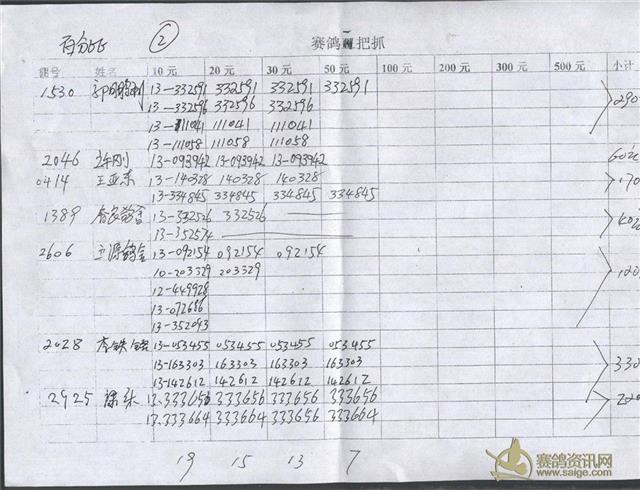 百分比 ② 赛鸽 把抓
棚号 姓名 10元 20元 30元 50元 100元 200元 300元 500元 小计
1530 13-332591 332591 332591 332591 290
13-332596 332596 332596
13-111041 111041 111041
13-111058 111058 111058
2046 许刚 13-093942 13-093942 13-093942 60元
0414 王亚东 13-140328 140328 140328 170
13-334845 334845 334845 334845
1389 13-332526 332526 40元
13-352574
2606 13-092154 092154 092154 120
10-203329 203329
12-449928
13-072656
13-352093
2028 李铁 13-053455 053455 053455 053455 330
13-163303 163303 163303 163303
13-142612 142612 142612 142612
2925 13-333656 333656 333656 333656 220
13-333664 333664 333664 333664
19 15 13 7
赛鸽资讯网
www.saige.com